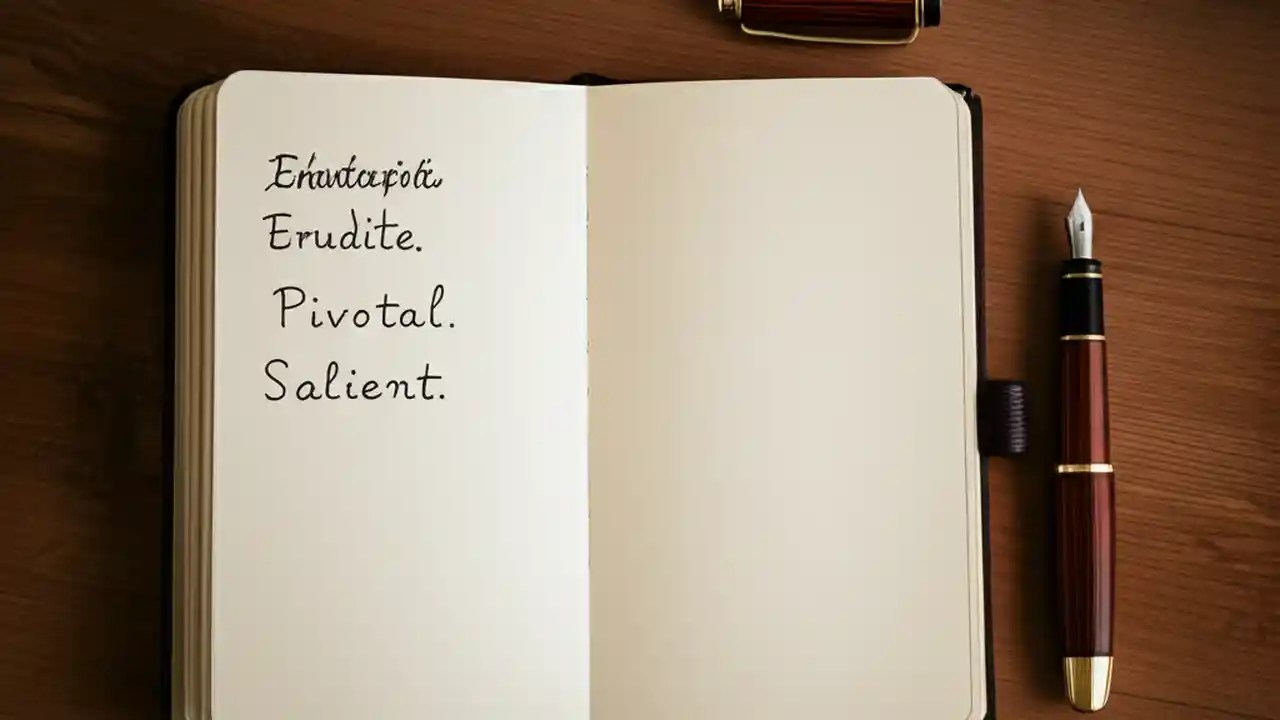 Erudite.
Pivotal.
Salient.